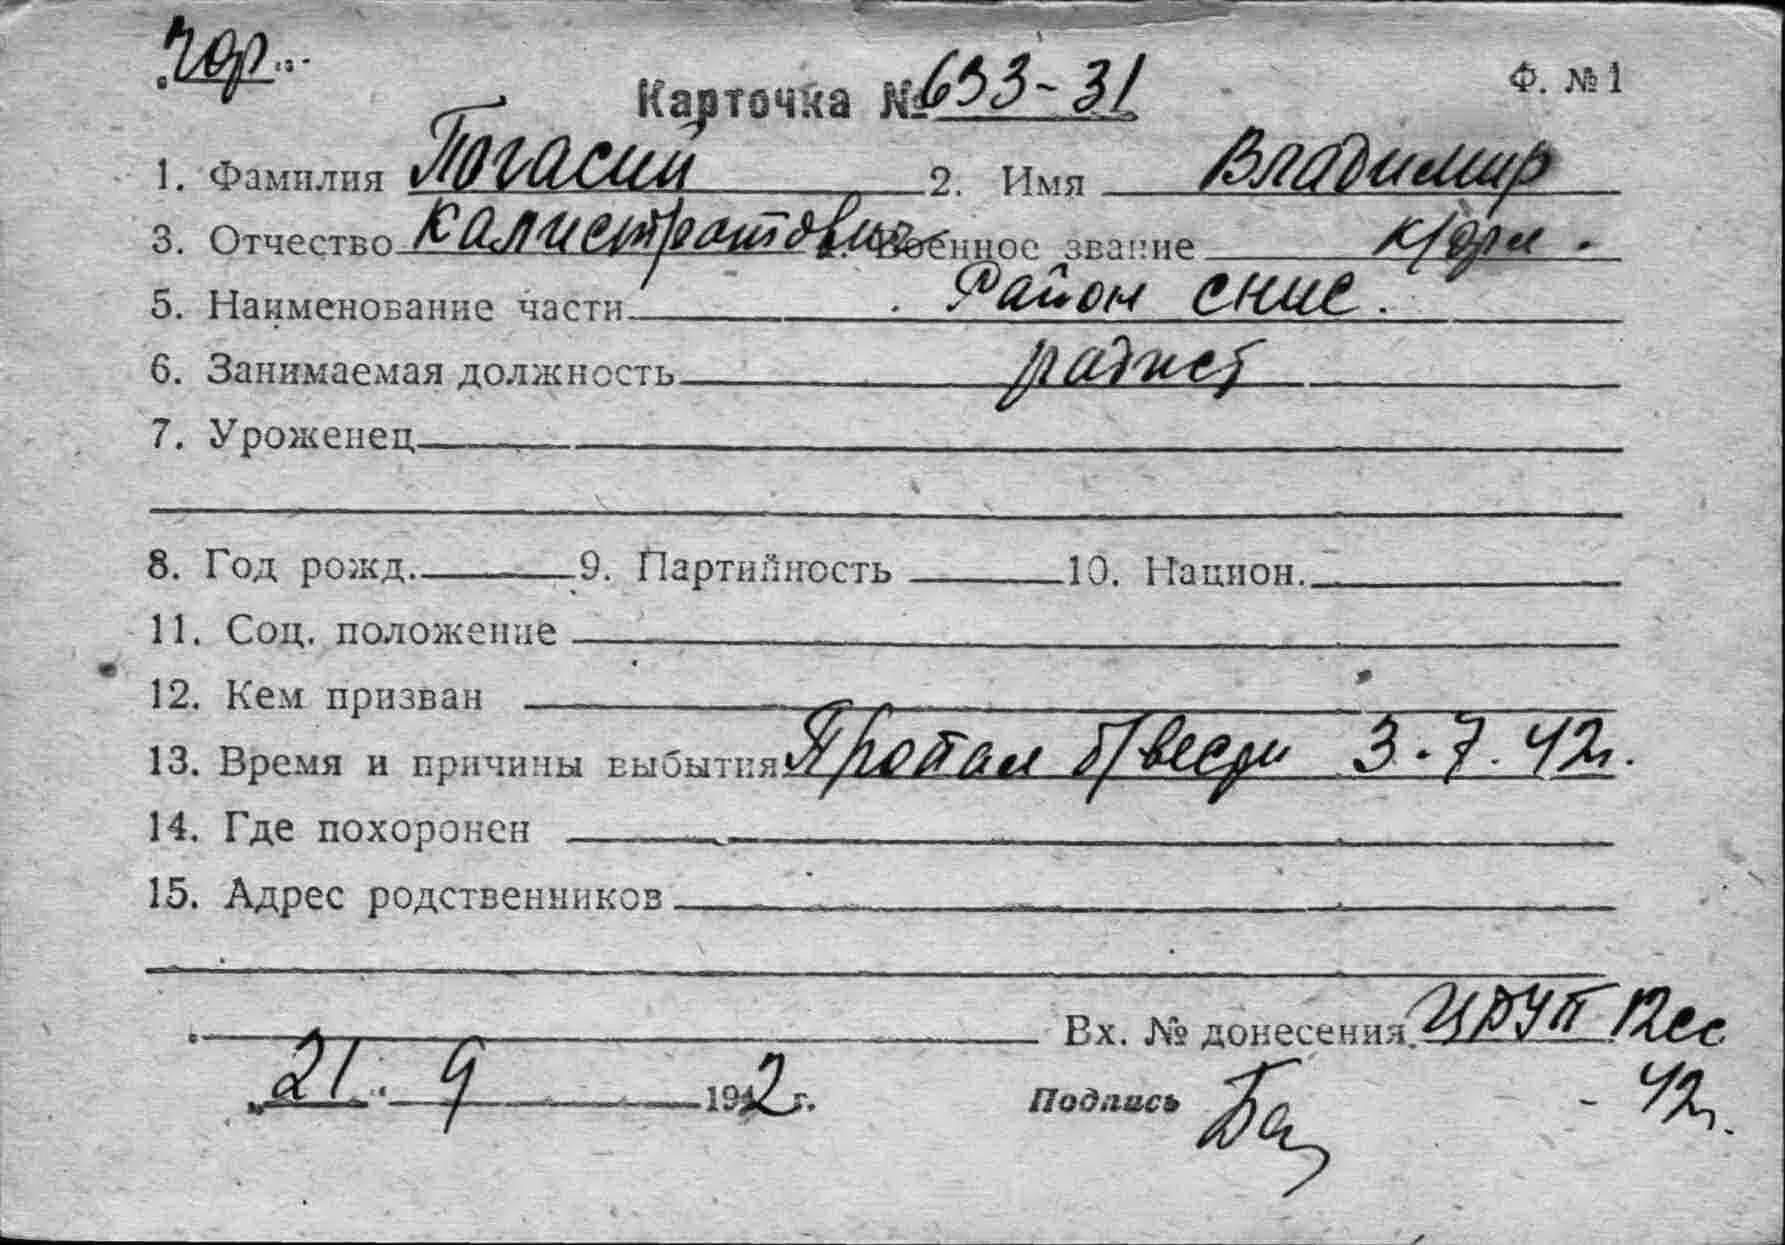 Чор.
Ф. №1
Карточка № 633-31
1. Фамилия Погасий 2. Имя Владимир
3. Отчество Калистратович 4. Военное звание к/фл.
5. Наименование части Район СНИС.
6. Занимаемая должность радист
7. Уроженец
8. Год рожд. 9. Партийность 10. Национ.
11. Соц. положение
12. Кем призван
13. Время и причины выбытия Пропал б/вести 3.7.42г.
14. Где похоронен
15. Адрес родственников
Вх. № донесения ЦОУП 12сс
- 42г.
„21" 9 1942 г. Подпись